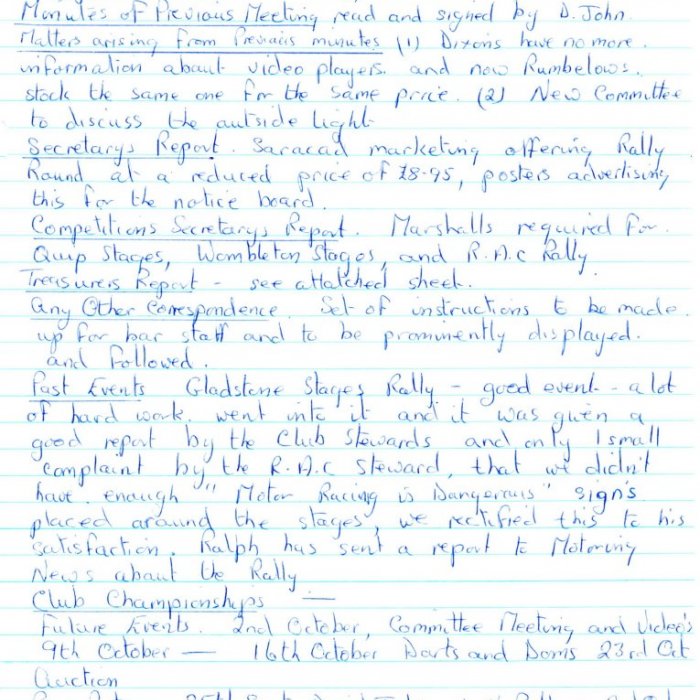 Minutes of Previous Meeting read and signed by D. John.
Matters arising from Previous minutes (1) Dixons have no more
information about video players. and now Rumbelows.
stock the same one for the same price. (2) New Committee
to discuss the outside light.
Secretarys Report. Saracad marketing offering Rally
Round at a reduced price of £8-95, posters advertising
this for the notice board.
Competitions Secretarys Report. Marshalls required for.
Quip Stages, Wombleton Stages, and R.A.C Rally.
Treasurers Report - see attatched sheet.
Any Other Correspondence. Set of instructions to be made.
up for bar staff and to be prominently displayed.
and followed.
Past Events Gladstone Stages Rally - good event - a lot
of hard work. went into it and it was given a
good report by the Club Stewards and only 1 small
complaint by the R.A.C Steward, that we didn't
have. enough "Motor Racing is Dangerous" sign's
placed around the stages, we rectified this to his
satisfaction. Ralph has sent a report to Motoring
News about the Rally
Club Championships —
Future Events. 2nd October, Committee Meeting and Video's
9th October — 16th October Darts and Doms 23rd Oct
Auction